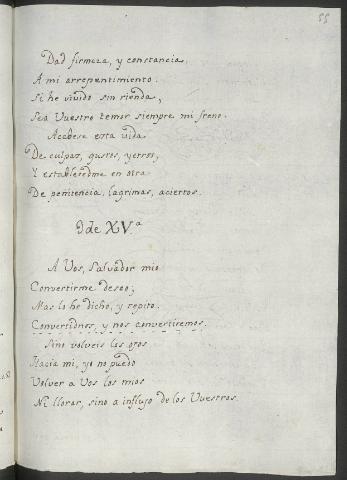 55
Dad firmeza, y constancia,
A mi arrepentimiento.
Si he vivido sin rienda,
Sea Vuestro temor siempre mi freno.
Acabese esta vida
De culpas, gustos, yerros,
Y establecedme en otra
De penitencia, lagrimas, aciertos.
Ode XV.a
A Vos, Salvador mio
Convertirme deseo;
Mas lo he dicho, y repito.
Convertidnos, y nos convertiremos.
Sino volveis los ojos
Hacia mi, yo no puedo
Volver a Vos los mios
Ni llorar, sino a influjo de los Vuestros.